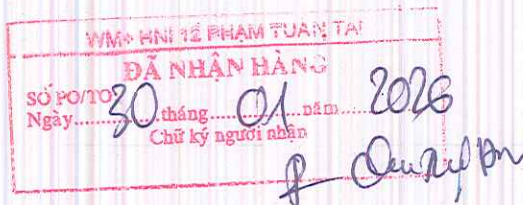 WM+ HNI 12 PHẠM TUẤN TÀI
ĐÃ NHẬN HÀNG
SỐ PO/TO
Ngày 30 tháng 01 năm 2026
Chữ ký người nhận